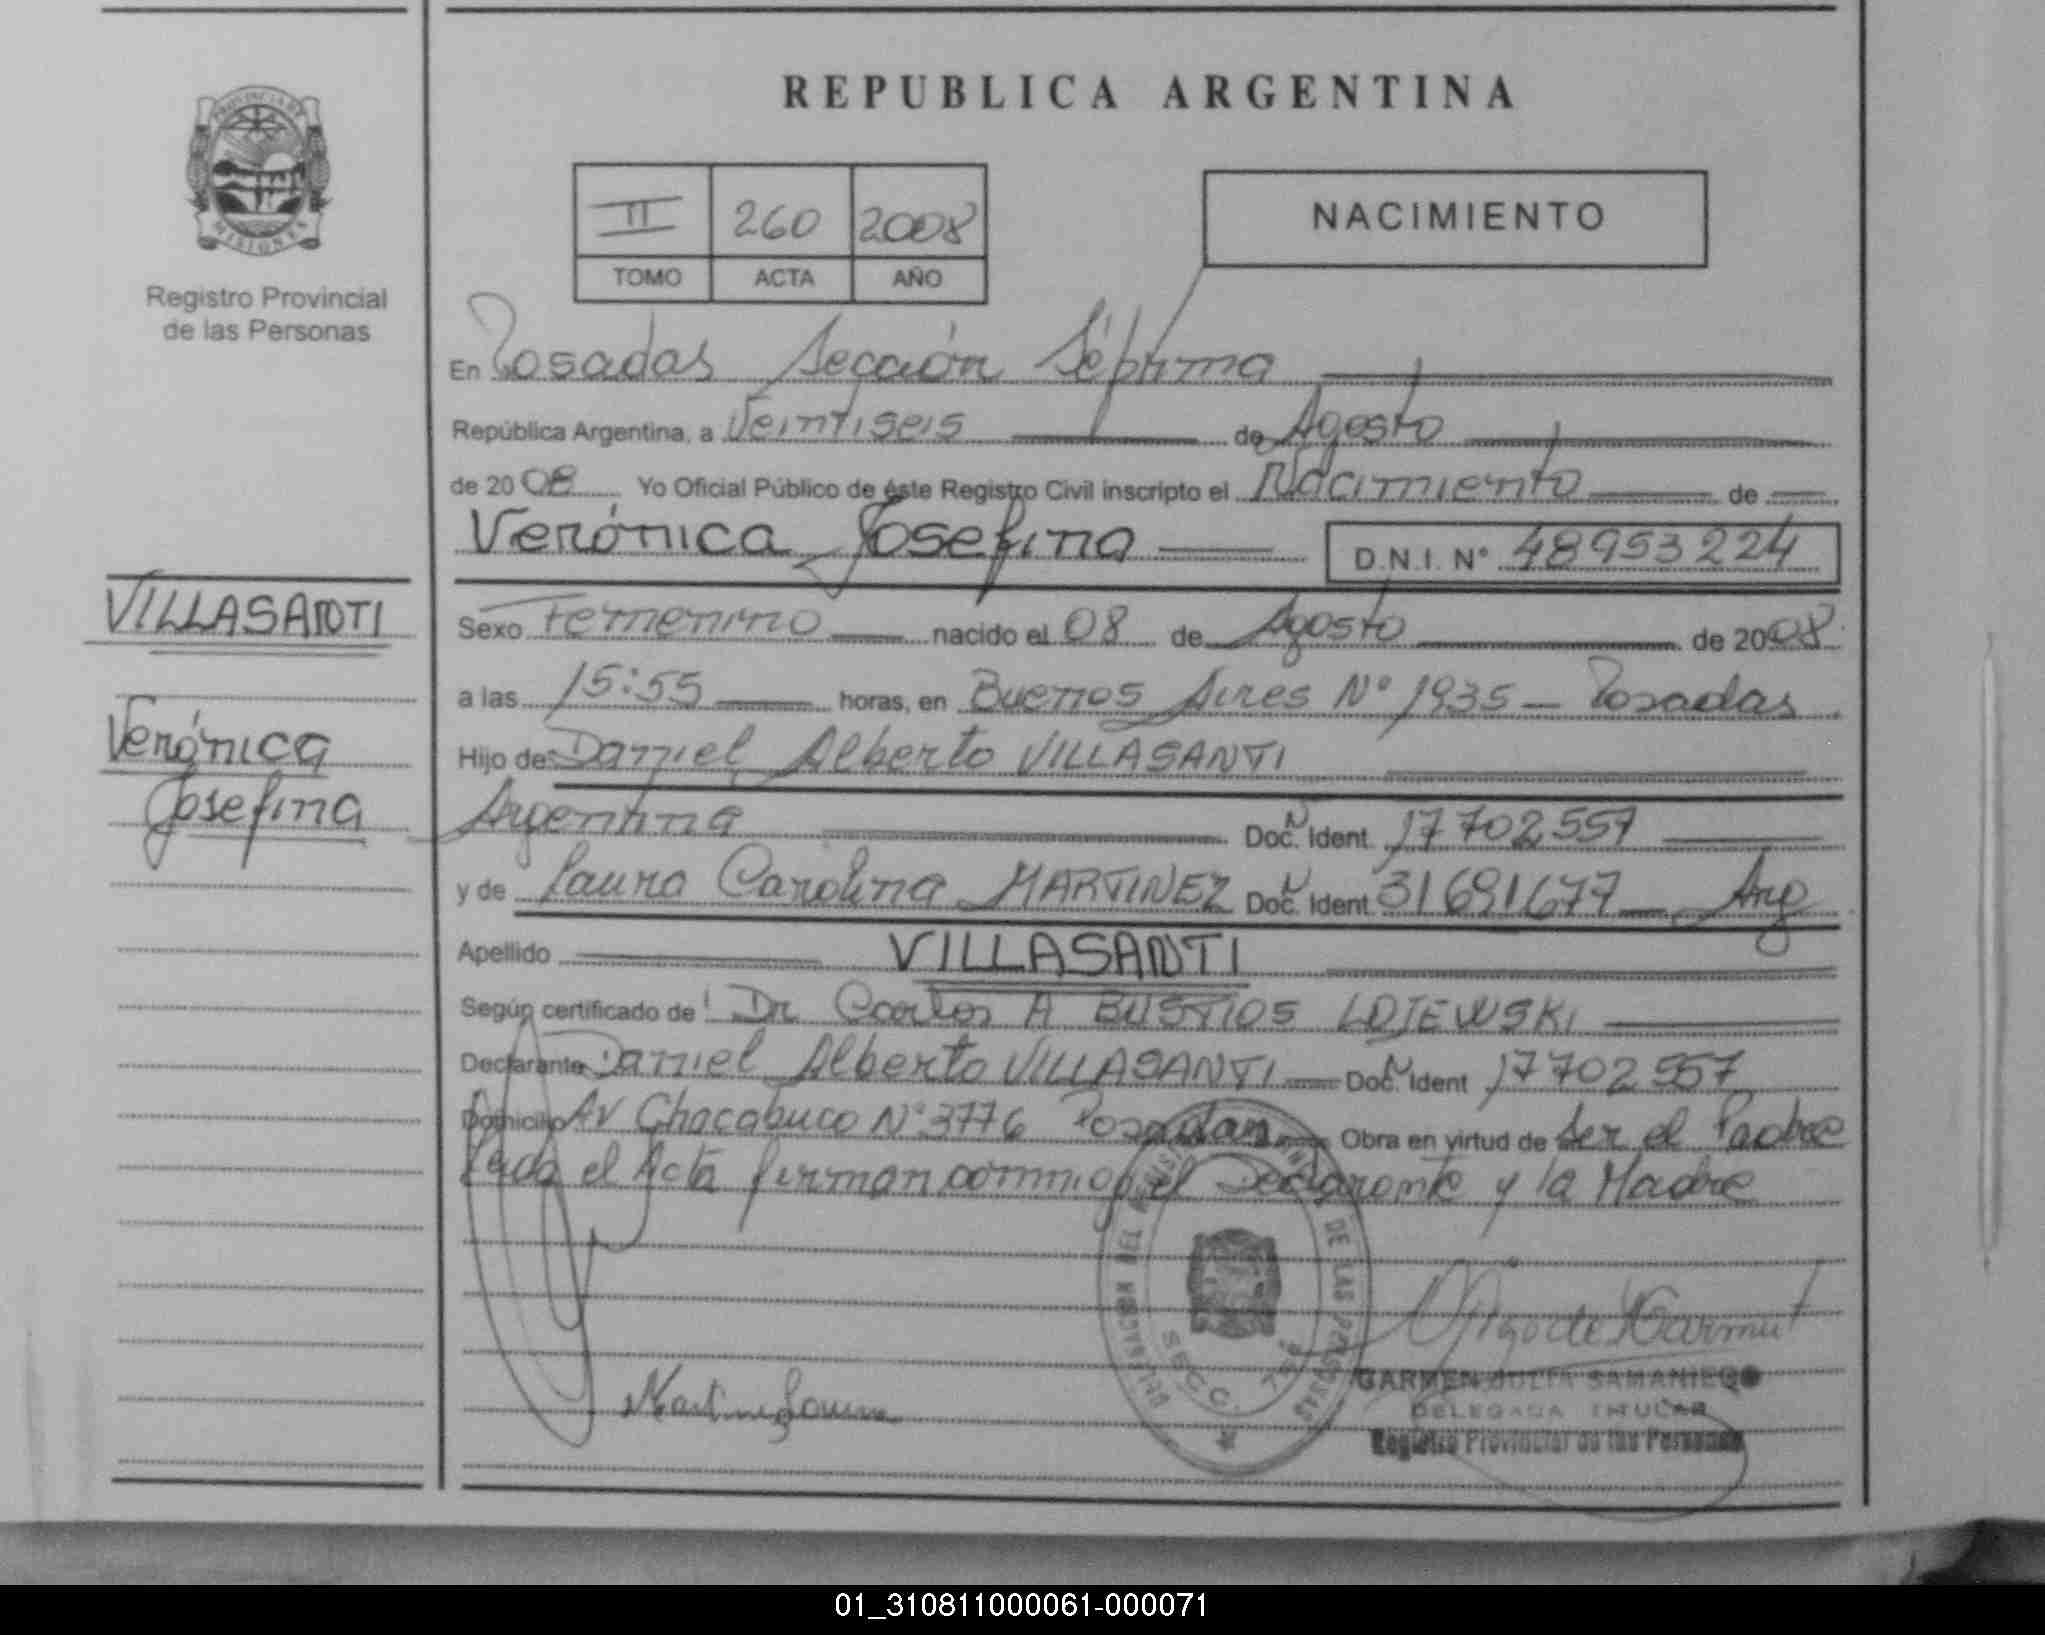 REPUBLICA ARGENTINA
PROVINCIA DE
MISIONES
Registro Provincial
de las Personas
II 260 2008
TOMO ACTA AÑO
NACIMIENTO
En Posadas Sección Séptima
República Argentina, a Veintiseis de Agosto
de 2008 Yo Oficial Público de éste Registro Civil inscripto el Nacimiento de
Verónica Josefina D.N.I. N° 48953224
VILLASANTI
Verónica
Josefina
Sexo Femenino nacido el 08 de Agosto de 2008
a las 15:55 horas, en Buenos Aires N° 1935 – Posadas
Hijo de Daniel Alberto VILLASANTI
Argentina Doc. Ident. 17702557
y de Laura Carolina MARTINEZ Doc. Ident 31691677 Arg
Apellido VILLASANTI
Según certificado de Dr Carlos A BUSTIOS LOJEWSKI
Declarante Daniel Alberto VILLASANTI Doc. Ident 17702557
Domicilio Av Chacabuco N° 3776 Posadas Obra en virtud de ser el Padre
Leida el Acta firman conmigo el Declarante y la Madre
DE LAS PERSONAS
SECC. 7
Martinez Laura
CARMEN JULIA SAMANIEGO
DELEGADA TITULAR
Registro Provincial de las Personas
01_310811000061-000071